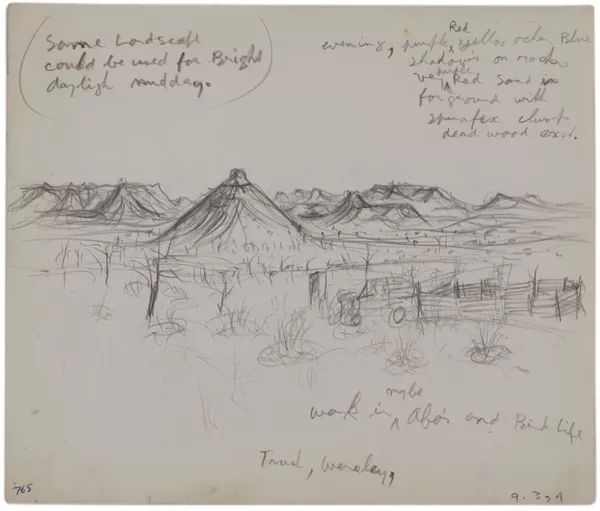 Same Landscape
could be used for Bright
dayligh midday.
evening, purple, Red yellow ocher Blue
shadows on rocks
very purple Red Sand in
forground with
spinafex clump
dead wood ect.
work in maybe Abo's and Bird Life
Truck,
765